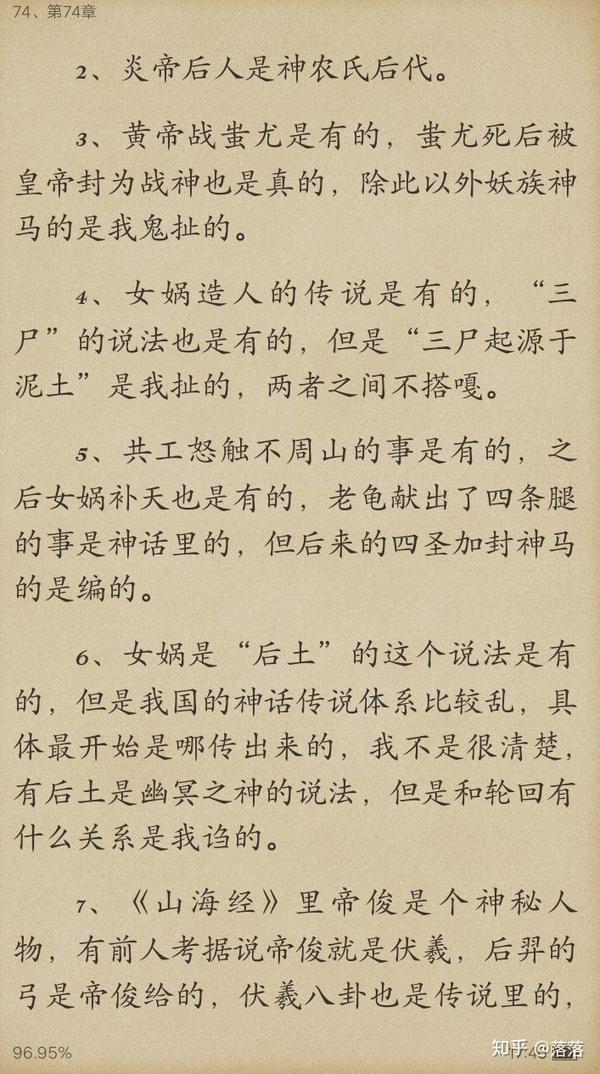 74、第74章
2、炎帝后人是神农氏后代。
3、黄帝战蚩尤是有的，蚩尤死后被
皇帝封为战神也是真的，除此以外妖族神
马的是我鬼扯的。
4、女娲造人的传说是有的，“三
尸”的说法也是有的，但是“三尸起源于
泥土”是我扯的，两者之间不搭嘎。
5、共工怒触不周山的事是有的，之
后女娲补天也是有的，老龟献出了四条腿
的事是神话里的，但后来的四圣加封神马
的是编的。
6、女娲是“后土”的这个说法是有
的，但是我国的神话传说体系比较乱，具
体最开始是哪传出来的，我不是很清楚，
有后土是幽冥之神的说法，但是和轮回有
什么关系是我诌的。
7、《山海经》里帝俊是个神秘人
物，有前人考据说帝俊就是伏羲，后羿的
弓是帝俊给的，伏羲八卦也是传说里的，
96.95%
知乎 @落落